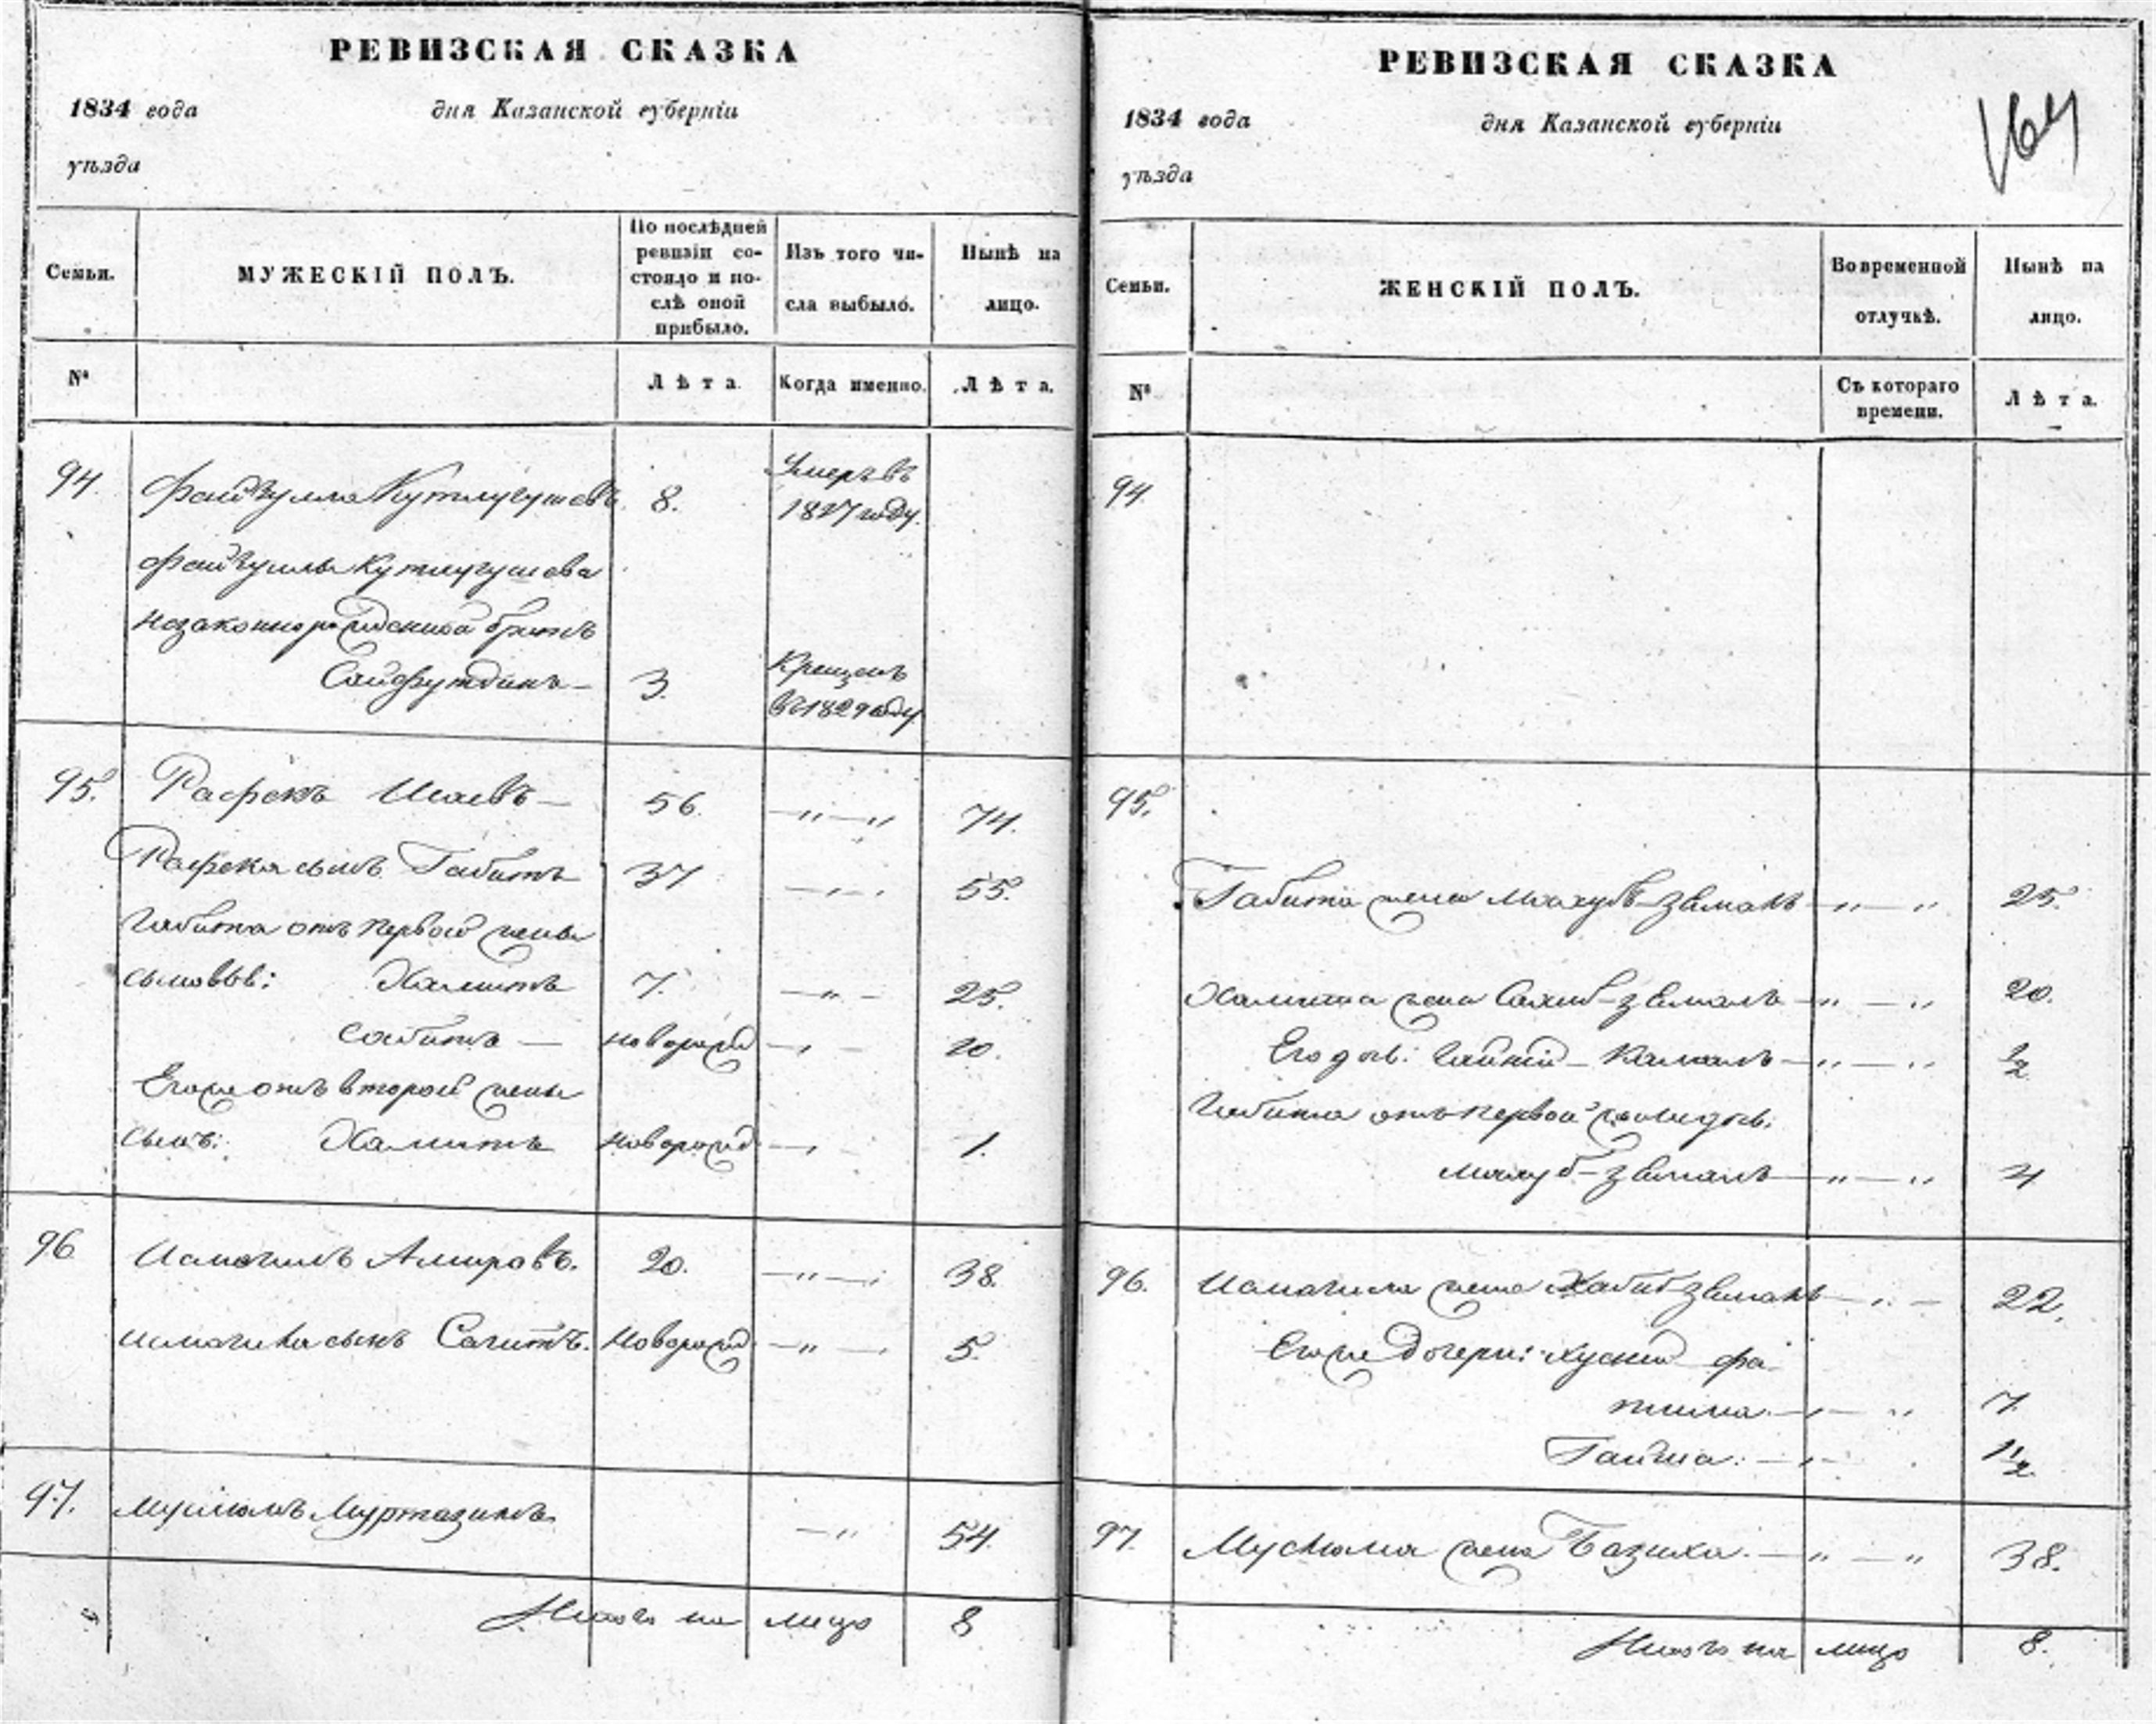 РЕВИЗСКАЯ СКАЗКА
1834 года дня Казанской губерніи
уѣзда
Семьи. МУЖЕСКІЙ ПОЛЪ. По послѣдней ревизіи состояло и послѣ оной прибыло. Изъ того числа выбыло. Нынѣ на лицо.
№ Лѣта. Когда именно. Лѣта.
94. Файзулла Кутлугушевъ 8. Умеръ въ 1827 году.
Файзуллы Кутлугушева
незаконнорожденной братъ
Сайфутдинъ — 3. Крещенъ въ 1829 году
95. Рафекъ Исаевъ — 56. —"—" 74.
Рафека сынъ Габитъ 37 55.
Габита отъ первой жены
сыновья: Халитъ 7. —"— 25.
Сабитъ — новорожд 10.
Его же отъ второй жены
сынъ: Хамитъ новорожд 1.
96 Исмагилъ Амировъ. 20. —"— 38.
Исмагила сынъ Сагитъ. новорожд —"— 5.
97. Муслюмъ Муртазинъ. —" 54.
Итого на лицо 8
РЕВИЗСКАЯ СКАЗКА
1834 года дня Казанской губерніи
уѣзда
164
Семьи. ЖЕНСКІЙ ПОЛЪ. Во временной отлучкѣ. Нынѣ на лицо.
№ Съ котораго времени. Лѣта.
94.
95.
Габита жена Махубъ-земалъ —"—" 25.
Халита жена Сахиб-земалъ —"—" 20.
Его дочь: Камалъ —"—" ½
Габита отъ первой жены дочь:
Махуб-земалъ —"—" 4
96. Исмагила жена Хабиб-земалъ 22.
Его же дочери: Хусни фа-
тима. 7.
Гайша. 1½
97. Муслюма жена Базиха. —"—" 38.
Итого на лицо 8.